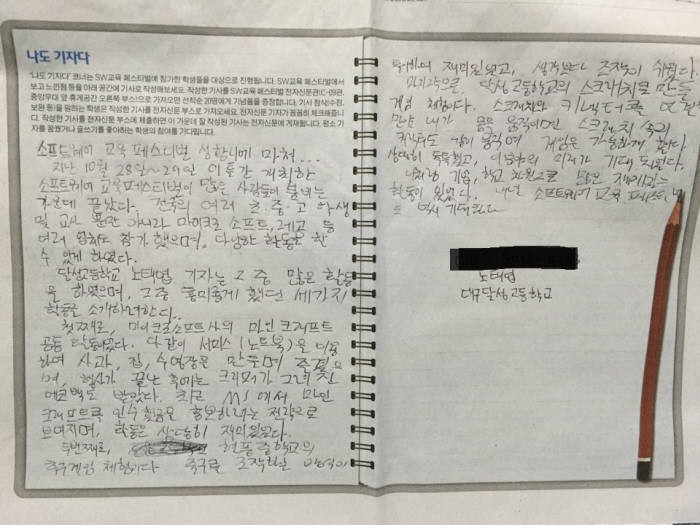 나도 기자다
'나도 기자다' 코너는 SW교육 페스티벌에 참가한 학생들을 대상으로 진행됩니다. SW교육 페스티벌에서
보고 느낀점 등을 아래 공간에 기사로 작성해보세요. 작성한 기사를 SW교육 페스티벌 전자신문관(C-09관,
중앙무대 옆 휴게공간 오른쪽 부스)으로 가져오면 선착순 20명에게 기념품을 증정합니다. 기사 첨삭(수정,
보완 등)을 원하는 학생은 작성한 기사를 전자신문 부스로 가져오세요. 전자신문 기자가 꼼꼼히 체크해줍니
다. 작성한 기사를 전자신문 부스에 제출하면 이 가운데 잘 작성된 기사는 전자신문에 게재됩니다. 평소 기
자를 꿈꿨거나 글쓰기를 좋아하는 학생의 참여를 기다립니다.
소프트웨어 교육 페스티벌 성황리에 마쳐...
지난 10월 28일~29일 이틀간 개최한
소프트웨어 교육페스티벌이 많은 사람들이 붐비는
가운데 끝났다. 전국의 여러 초·중·고 학생
및 교사 뿐만 아니라 마이크로 소프트, 레고 등
여러 업체도 참가 했으며, 다양한 활동을 할
수 있게 하였다.
달성고등학교 노태협 기자는 그 중 많은 활동
을 하였으며, 그중 흥미롭게 했던 세가지
활동을 소개하려한다.
첫째로, 마이크로소프트사의 마인크래프트
공동 활동이었다. 다같이 서피스(노트북)을 이용
하여 사과, 집, 수영장을 만들며 즐겼으
며, 행사가 끝난 후에는 크리퍼가 그려진
에코백도 받았다. 최근 MS에서 마인
크래프트를 인수했음을 홍보하려는 전략으로
보여지며, 활동은 상당히 재미있었다.
두번째로, 현풍중학교의
축구게임 체험이다. 축구를 조작하는 방식이
독특하여 재미있었고, 생각보다 조작이 쉬웠다.
마지막으로, 달성고등학교의 스크래치로 만들
게임 체험이다. 스크래치와 키넥트를
만든 내가 몸을 움직이면 스크래치 속의
캐릭터도 같이 움직이며 게임을 가능하게 한다
상당히 독특했고, 이 분야의 미래가 기대 되었다.
나머지 기업, 학교 차원으로 많은 재미있는
활동이 있었다. 내년 소프트웨어 교육 페스티벌
도 역시 기대된다
노태협
대구달성고등학교